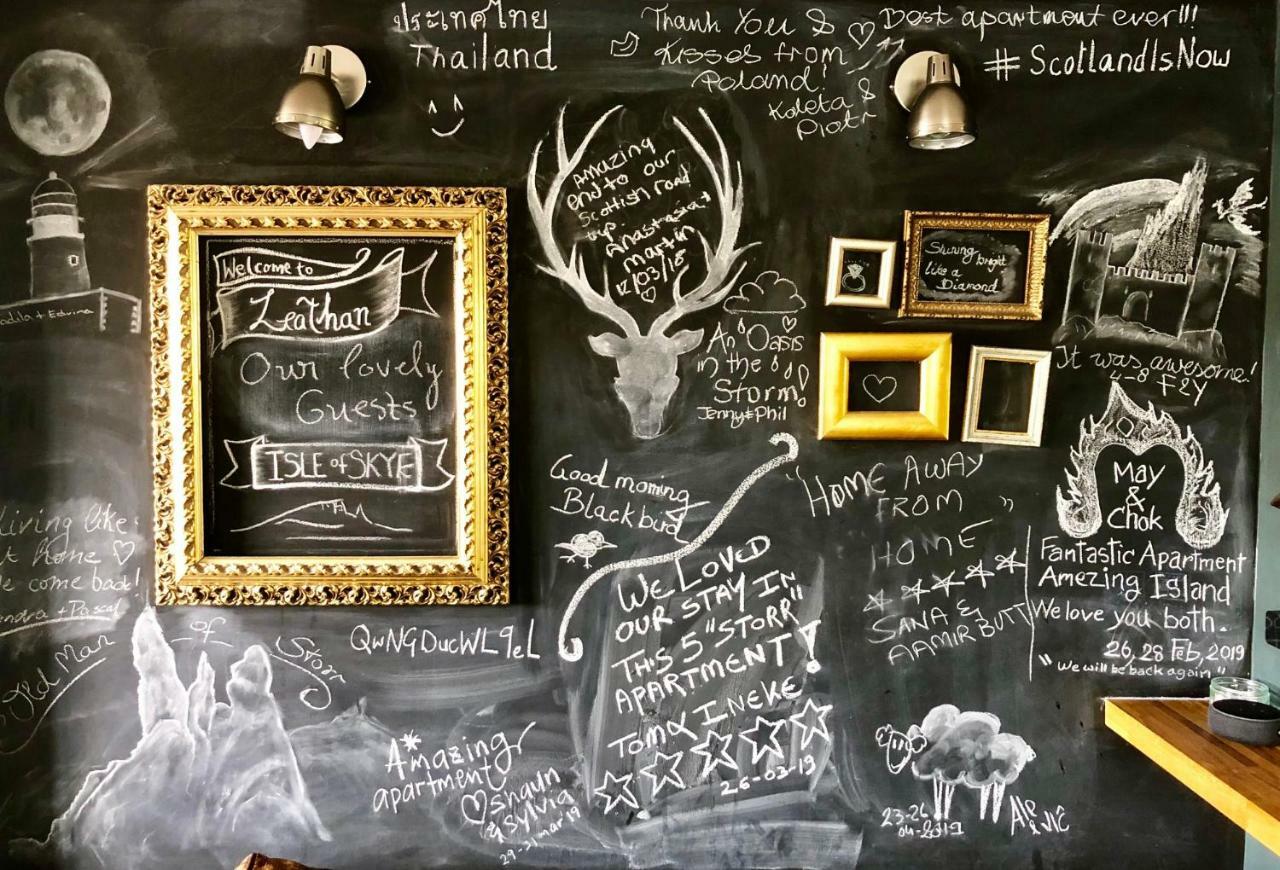 ประเทศไทย
Thailand
Thank You &
Kisses from
Poland!
Koleta &
Piotr
Best apartment ever!!!
#ScotlandIsNow
Amazing
end to our
Scottish road
trip
Martin
12/03/18
Welcome to
Leathan
Our lovely
Guests
ISLE of SKYE
An Oasis
in the
Storm!
Jenny & Phil
Shining bright
like a
Diamond
It was awesome!
4-8 Fey
Good morning
Blackbird
"HOME AWAY
FROM
HOME"
SANA &
AAMIR BUTT
May
&
Chok
Fantastic Apartment
Amezing Island
We love you both.
26, 28 Feb, 2019
"We will be back again"
living like
t home
e come back!
ndra + Pascal
Old Man of Storr
QwNGDucWL9eL
WE LOVED
OUR STAY IN
THIS 5 "STORR"
APARTMENT!
TOM & INEKE
26-03-19
Amazing
apartment
Shaun
& Sylvia
29-31 mar 19
23-26
04-2019